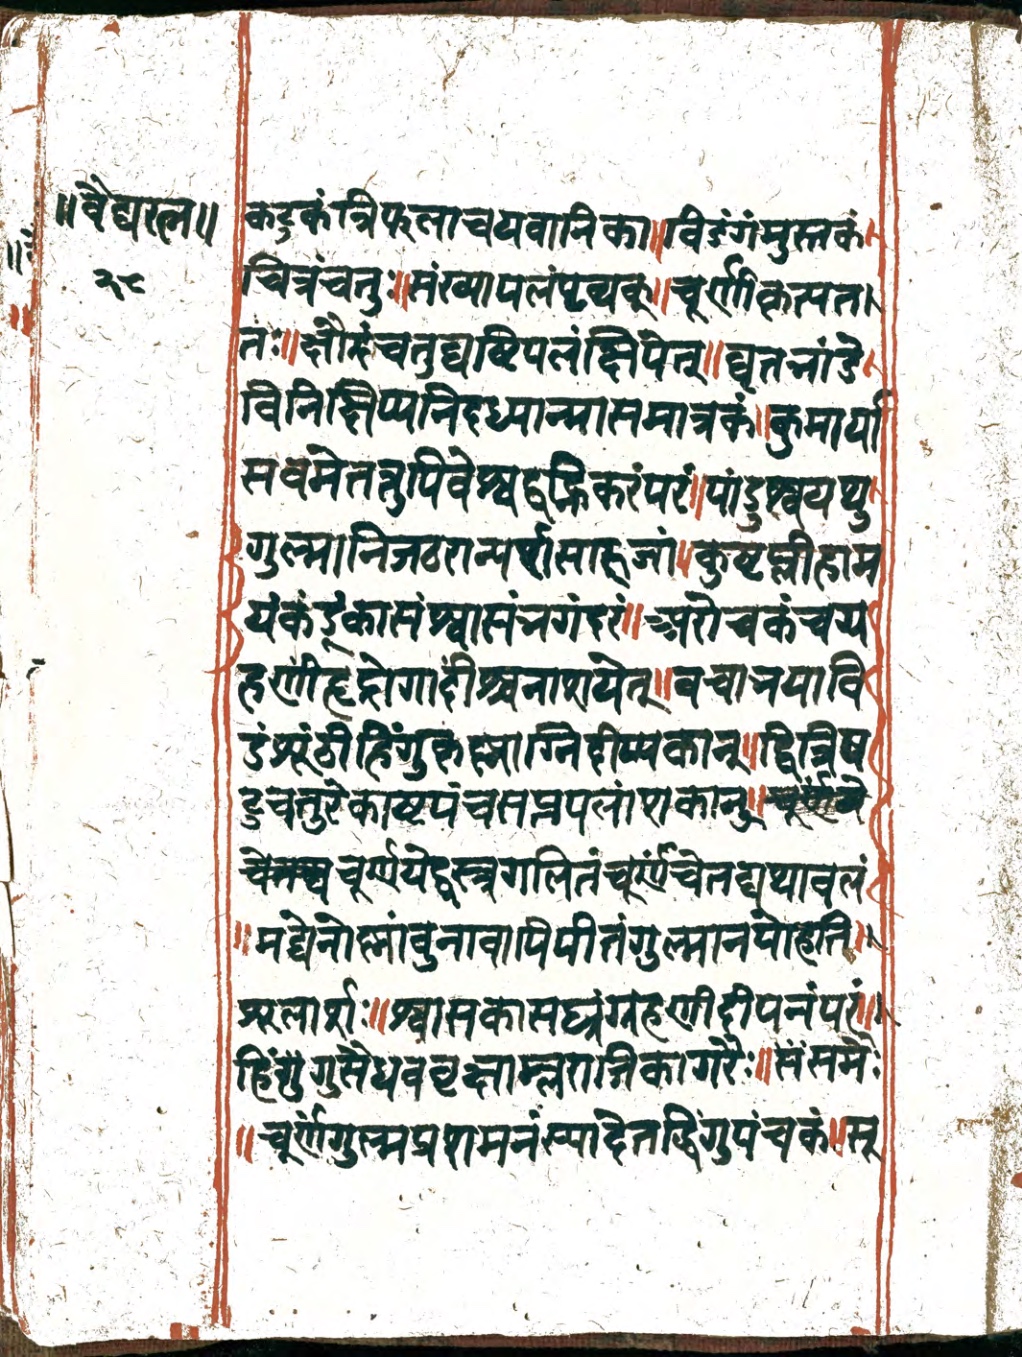 ॥वैद्यरत्न॥
२८
कटुकंत्रिफलाचयवानिका॥विडंगंमुस्तकं
चित्रंचतुः॥संख्यापलंपृथक्॥चूर्णीकृत्पत
तः॥क्षौद्रंचतुःषष्टिपलंक्षिपेत्॥घृतभांडे
विनिक्षिप्यनिदध्यान्मासमात्रकं॥कुमार्या
सवमेतत्तुपिवेश्चवह्निकरंपरं॥पांडुश्वयथु
गुल्मानिजठरान्यर्शसारुजां॥कुष्टप्लीहाम
यंकंडूकासंश्वासंभगंदरं॥अरोचकंचय
हणींहृद्रोगादींश्चनाशयेत्॥वचाभयावि
डंशूंठीहिंगुकुष्टाग्निदीप्यकान्॥द्वित्रिष
डुचतुरेकाष्टपंचसप्तपलांशकान्॥
चूर्णयेद्वस्त्रगलितंचूर्णंचेतद्यथावलं
॥मद्येनोष्णांवुनावापिपीतंगुल्मानपोहति॥
शूलार्शः॥श्वासकासघ्नंग्रहणीदीपनंपरं॥
हिंगुगुसैंधववृक्षाम्लराजिकागरैः॥संसमैः
॥चूर्णंगुल्मप्रशमनंस्पादेतद्धिंगुपंचकं॥सू